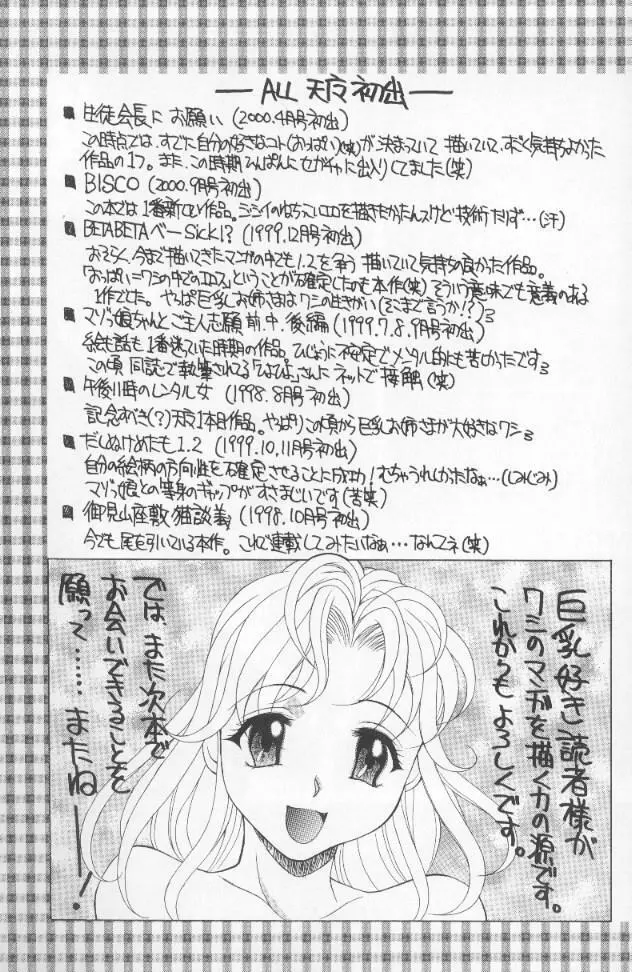 ALL 天魔 初出
■ 生徒会長に お願い (2000.4月号初出)
この時点では、すでに自分の好きなコト(おっぱい)(笑)が 決まっていて 描いていて、すごく気持ちよかった
作品の1つ。また、この時期 ひんぱんに セガサに出入りしてました(笑)
■ BISCO (2000.9月号初出)
この本では 1番新しい作品。
技術たりず…(汗)
■ BETABETAベー Sick!? (1999.12月号初出)
おそらく、今まで描いてきたマンガの中でも 1.2を争う 描いていて気持ちの良かった作品。
「おっぱい=ワシの中でのエロス」ということが石確定したのも本作(笑) そういう意味でも意義のある
1作でした。やっぱ巨乳お姉さまは ワシの生きがい(そこまで言うか!?)
■ マゾっ娘ちゃんとご主人志願 前.中.後編 (1999.7.8.9月号初出)
絵も話も 1番迷っていた時期の作品。ひじょうに不安定でメンタル的にも苦しかったです
この頃 同誌で執筆される さんに ネットで接触(笑)
■ 午後11時のレンタル女 (1998.8月号初出)
記念すべき(?)天魔1本目作品。やっぱりこの頃から巨乳お姉さまが大好きなワシ
■ だしぬけめたも1.2 (1999.10,11月号初出)
自分の絵柄の方向性を石確定させることに成功! むちゃうれしかったなぁ…(しみじみ)
マゾっ娘との等身のギャップがすさまじいです(苦笑)
■ 御見山座敷猫談義 (1998.10月号初出)
今でも 尾を引いている本作。これで連載してみたいなぁ…なんてネ(笑)
巨乳好き読者様が
ワシのマンガを描く力の源です。
これからも よろしくです。
では、また次本で
お会いできることを
願って……またねー!